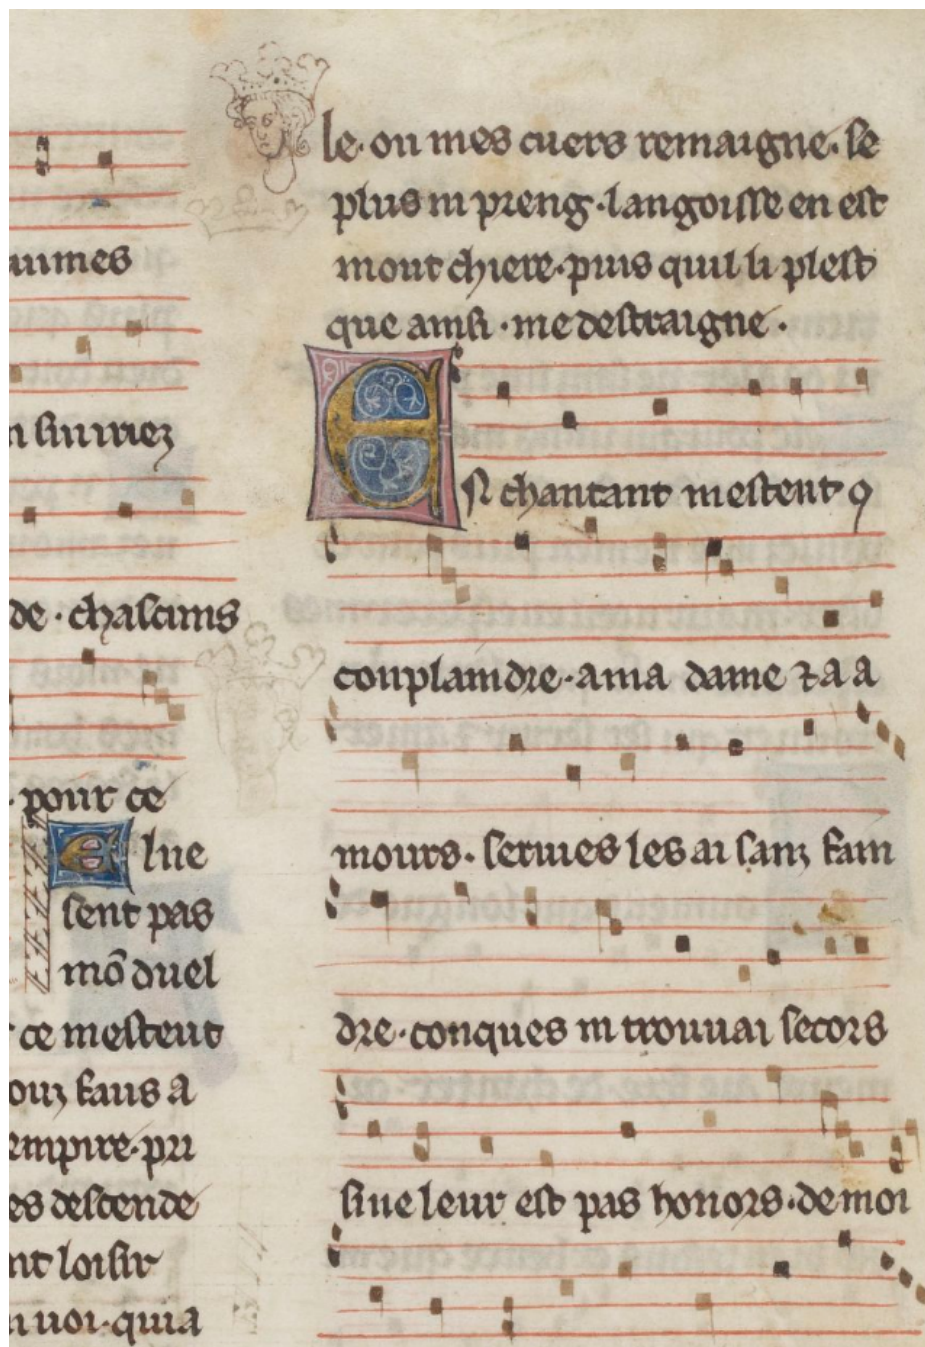 uimes
n siuuiez
de · chascuns
· pour ce
E lue
sent pas
mõ duel
ce mestent
ouz faus a
empire · pri
es descende
nt loisir
i uoi · quia
le · ou mes cuers remaigne · se
plus m preng · langoisse en est
mout chiere · puis quil li plest
que ainsi · me destraigne ·
En chantant mestent q
conplaindre · a ma dame ⁊ a a
mours · seruies les ai sanz fain
dre · conques ni trouuai secors
si ne leur est pas honors · de moi